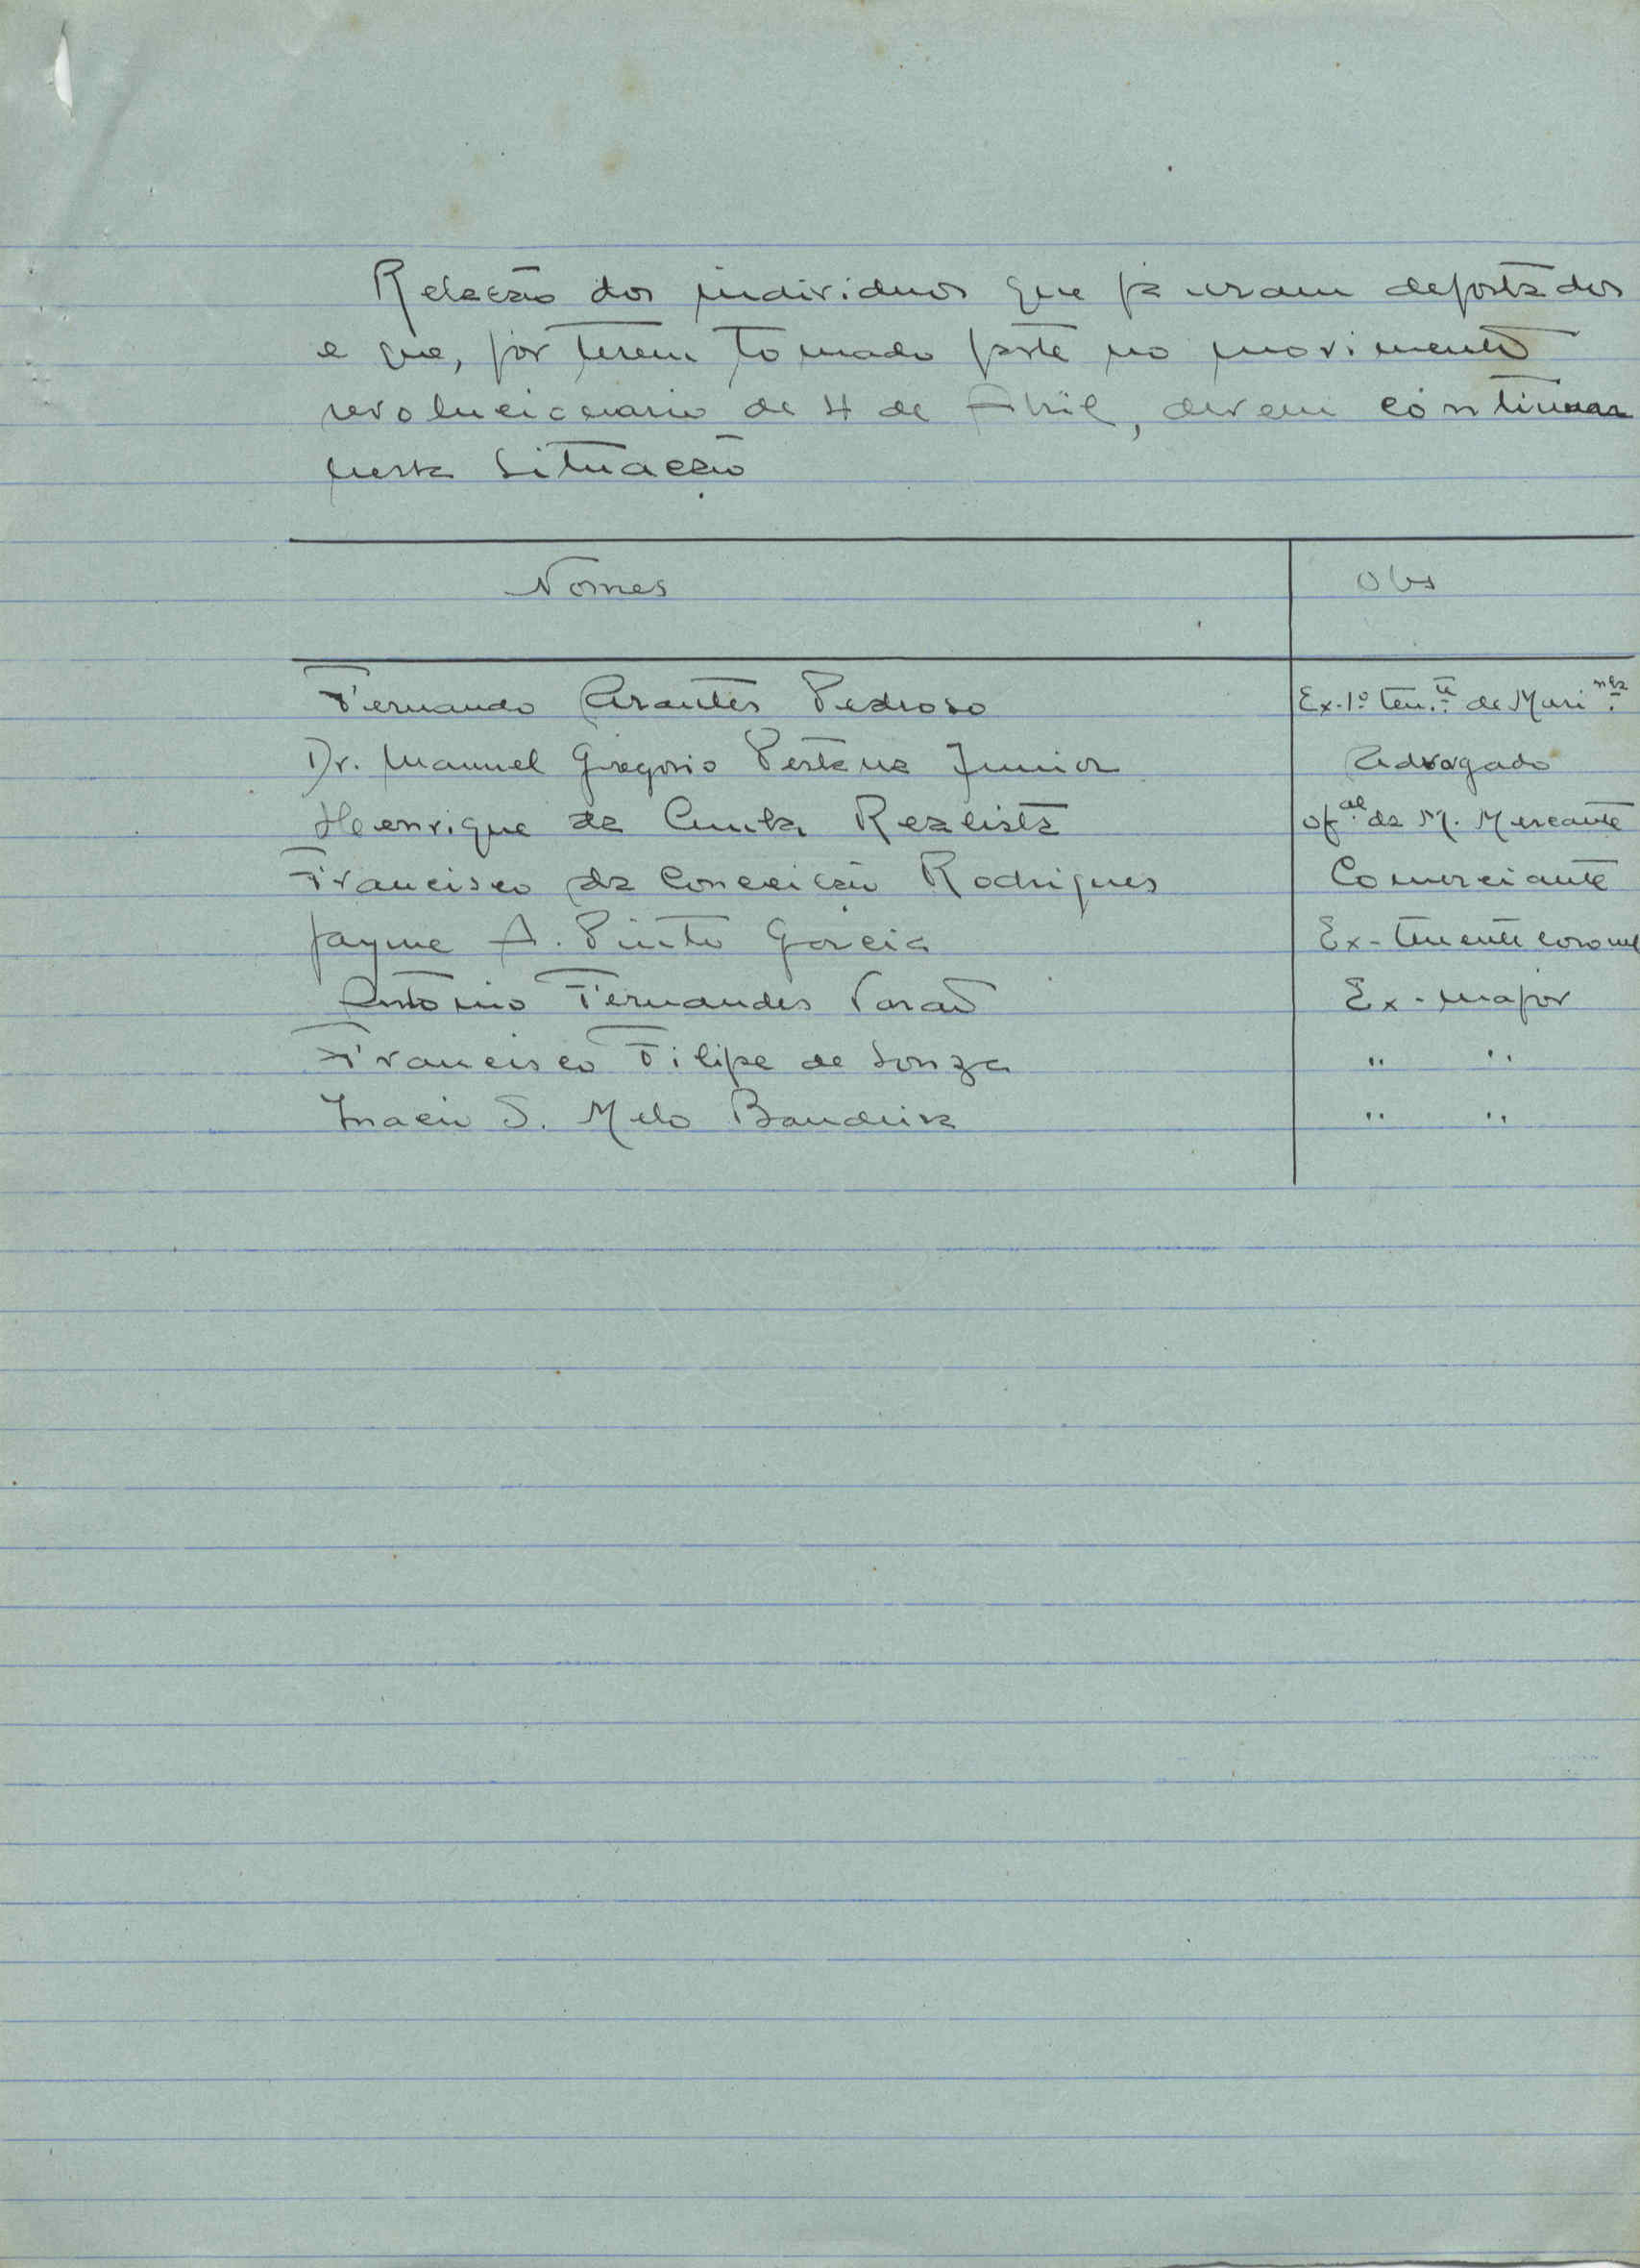 Relação dos individuos que ja eram deportados
e que, por terem tomado parte no movimento
revolucionario de 4 de Abril, devem continuar
nesta situação
Nomes Obs
Fernando Arantes Pedroso Ex-1º ten.te de Mari.nha
Dr. Manuel Gregorio Pestana Junior Advogado
Henrique da Cunha Realista of.al da M. Mercante
Francisco da Conceição Rodrigues Comerciante
Jayme A. Pinto Garcia Ex-tenente coronel
Antonio Fernandes Varão Ex-major
Francisco Filipe de Souza " "
Inacio S. Melo Bandeira " "